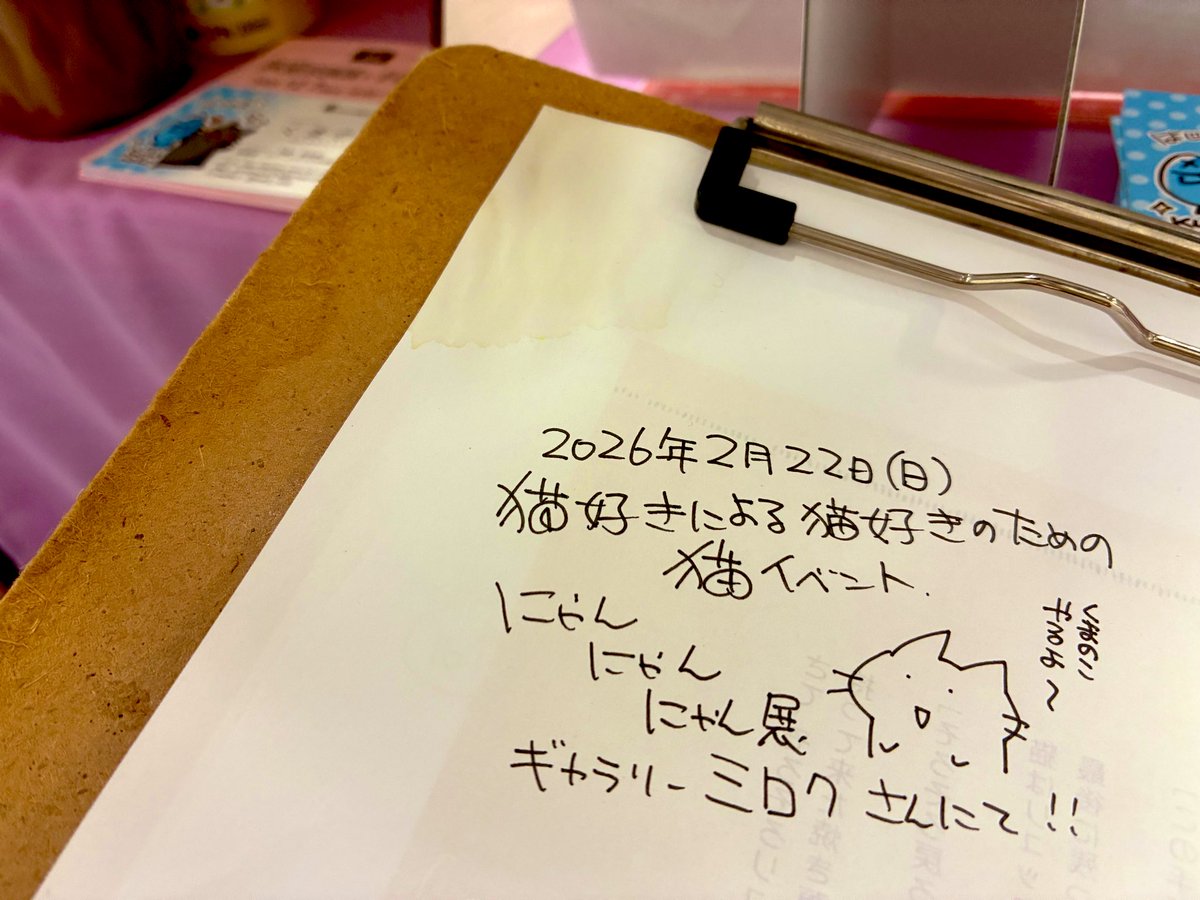 2026年2月22日(日)
猫好きによる猫好きのための
猫イベント.
にゃん
にゃん
にゃん展
ギャラリーミロクさんにて!!